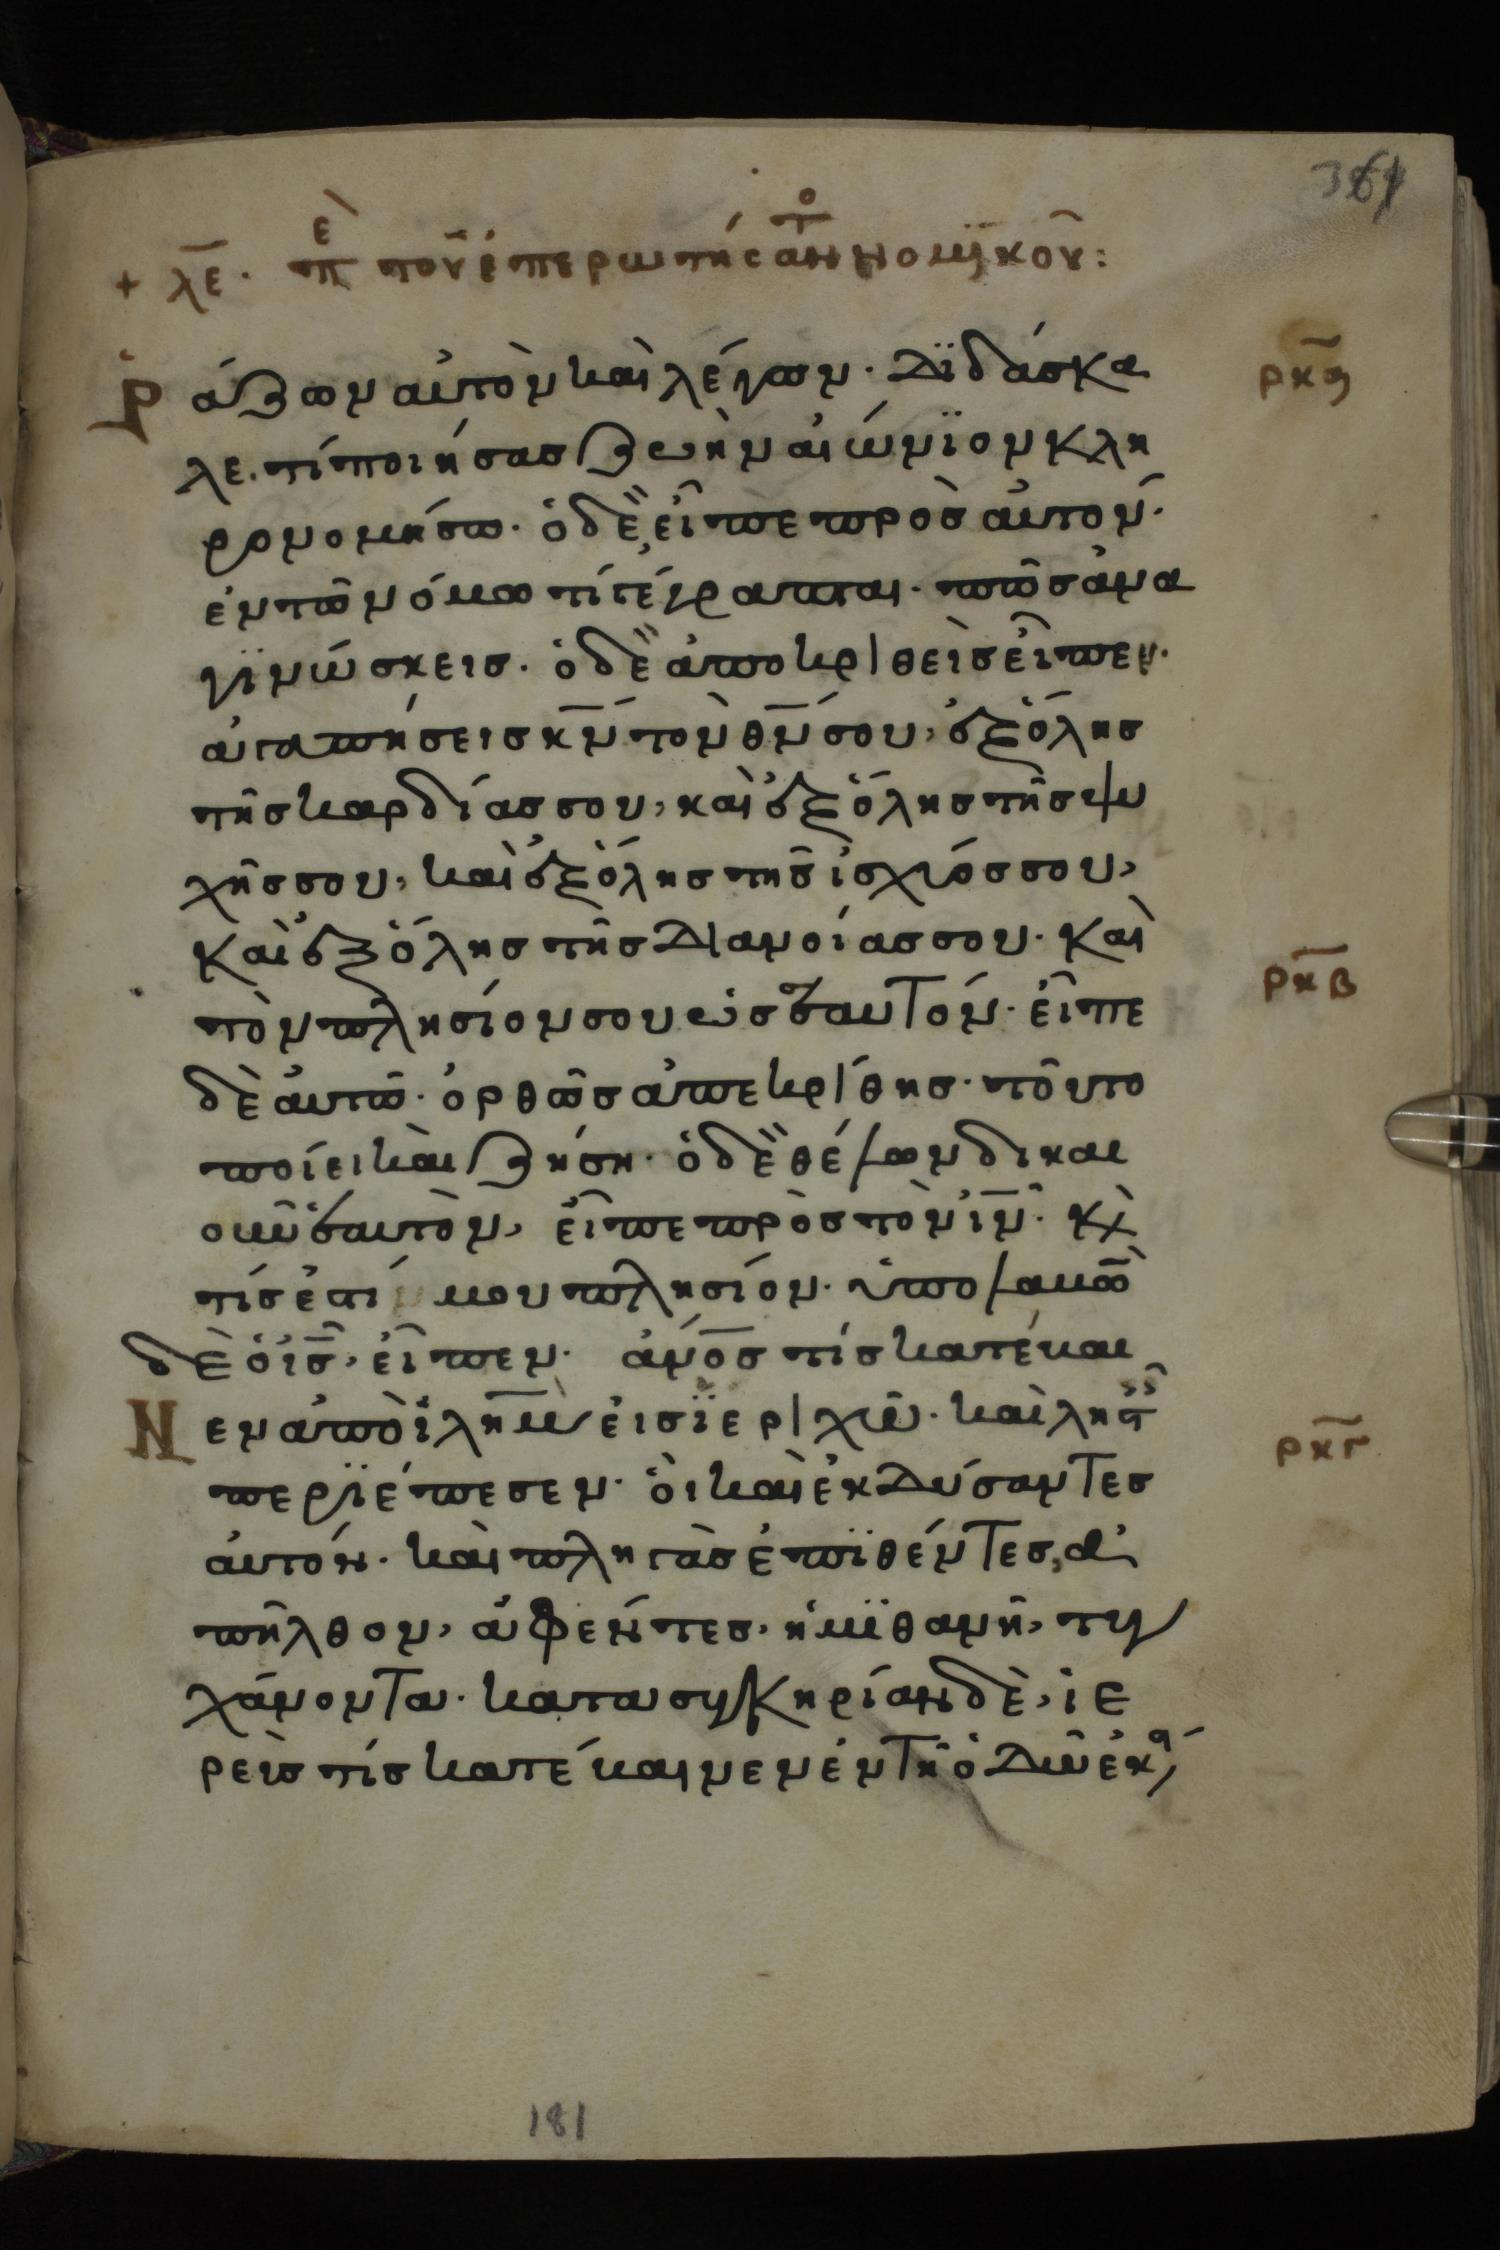 361
+ λε̅. πὲ τοῦ ἐπερωτήσαντο̅ς νομϊκοῦ:
ράζων αὐτὸν καὶ λέγων. Διδάσκα
λε. τί ποιήσας ζωὴν αἰώνϊον κλη
ρονομήσω. ὁ δὲ εἶπε πρὸς αὐτόν.
ἐν τῶ νόμω τί γέγραπται. πῶς ἀνα
γϊνώσκεις. ὁ δὲ ἀποκριθεὶς εἶπεν.
ἀγαπήσεις κ̅ν̅ τὸν θ̅ν̅ σου, ἐξ ὅλης
τῆς καρδίας σου, καὶ ἐξ ὅλης τῆς ψυ
χῆς σου, καὶ ἐξ ὅλης τῆς ἰσχύος σου,
καὶ ἐξ ὅλης τῆς διανοίας σου. καὶ
τὸν πλησίον σου ὡς ἑαυτόν. εἶπε
δὲ αὐτῶ. ὀρθῶς ἀπεκρίθης. τοῦτο
ποίει καὶ ζήση. ὁ δὲ θέλων δικαι
οῦν ἑαυτὸν, εἶπε πρὸς τὸν ι̅ν̅. κὶ
τίς ἐστί μου πλησίον. ὑπολαβὼ
δὲ ὁ ι̅ς̅, εἶπεν. ἀν̅ο̅ς τίς κατέβαι
Νεν ἀπὸ ἱλη̅μ̅ εἰς ϊεριχῶ. καὶ λησταῖς
περϊέπεσεν. οἱ καὶ ἐκδύσαντες
αὐτόν. καὶ πληγὰς ἐπϊθέντες, ἀ
πῆλθον, ἀφέντες. ἡμϊθανῆ, τυγ
χάνοντα. κατα συγκηρίαν δὲ, ἱε
ρεὺς τίς κατέβαινεν ἐν τῆ ὁδῶ ἐκεί
ρκα̅
ρκβ̅
ρκγ̅
181